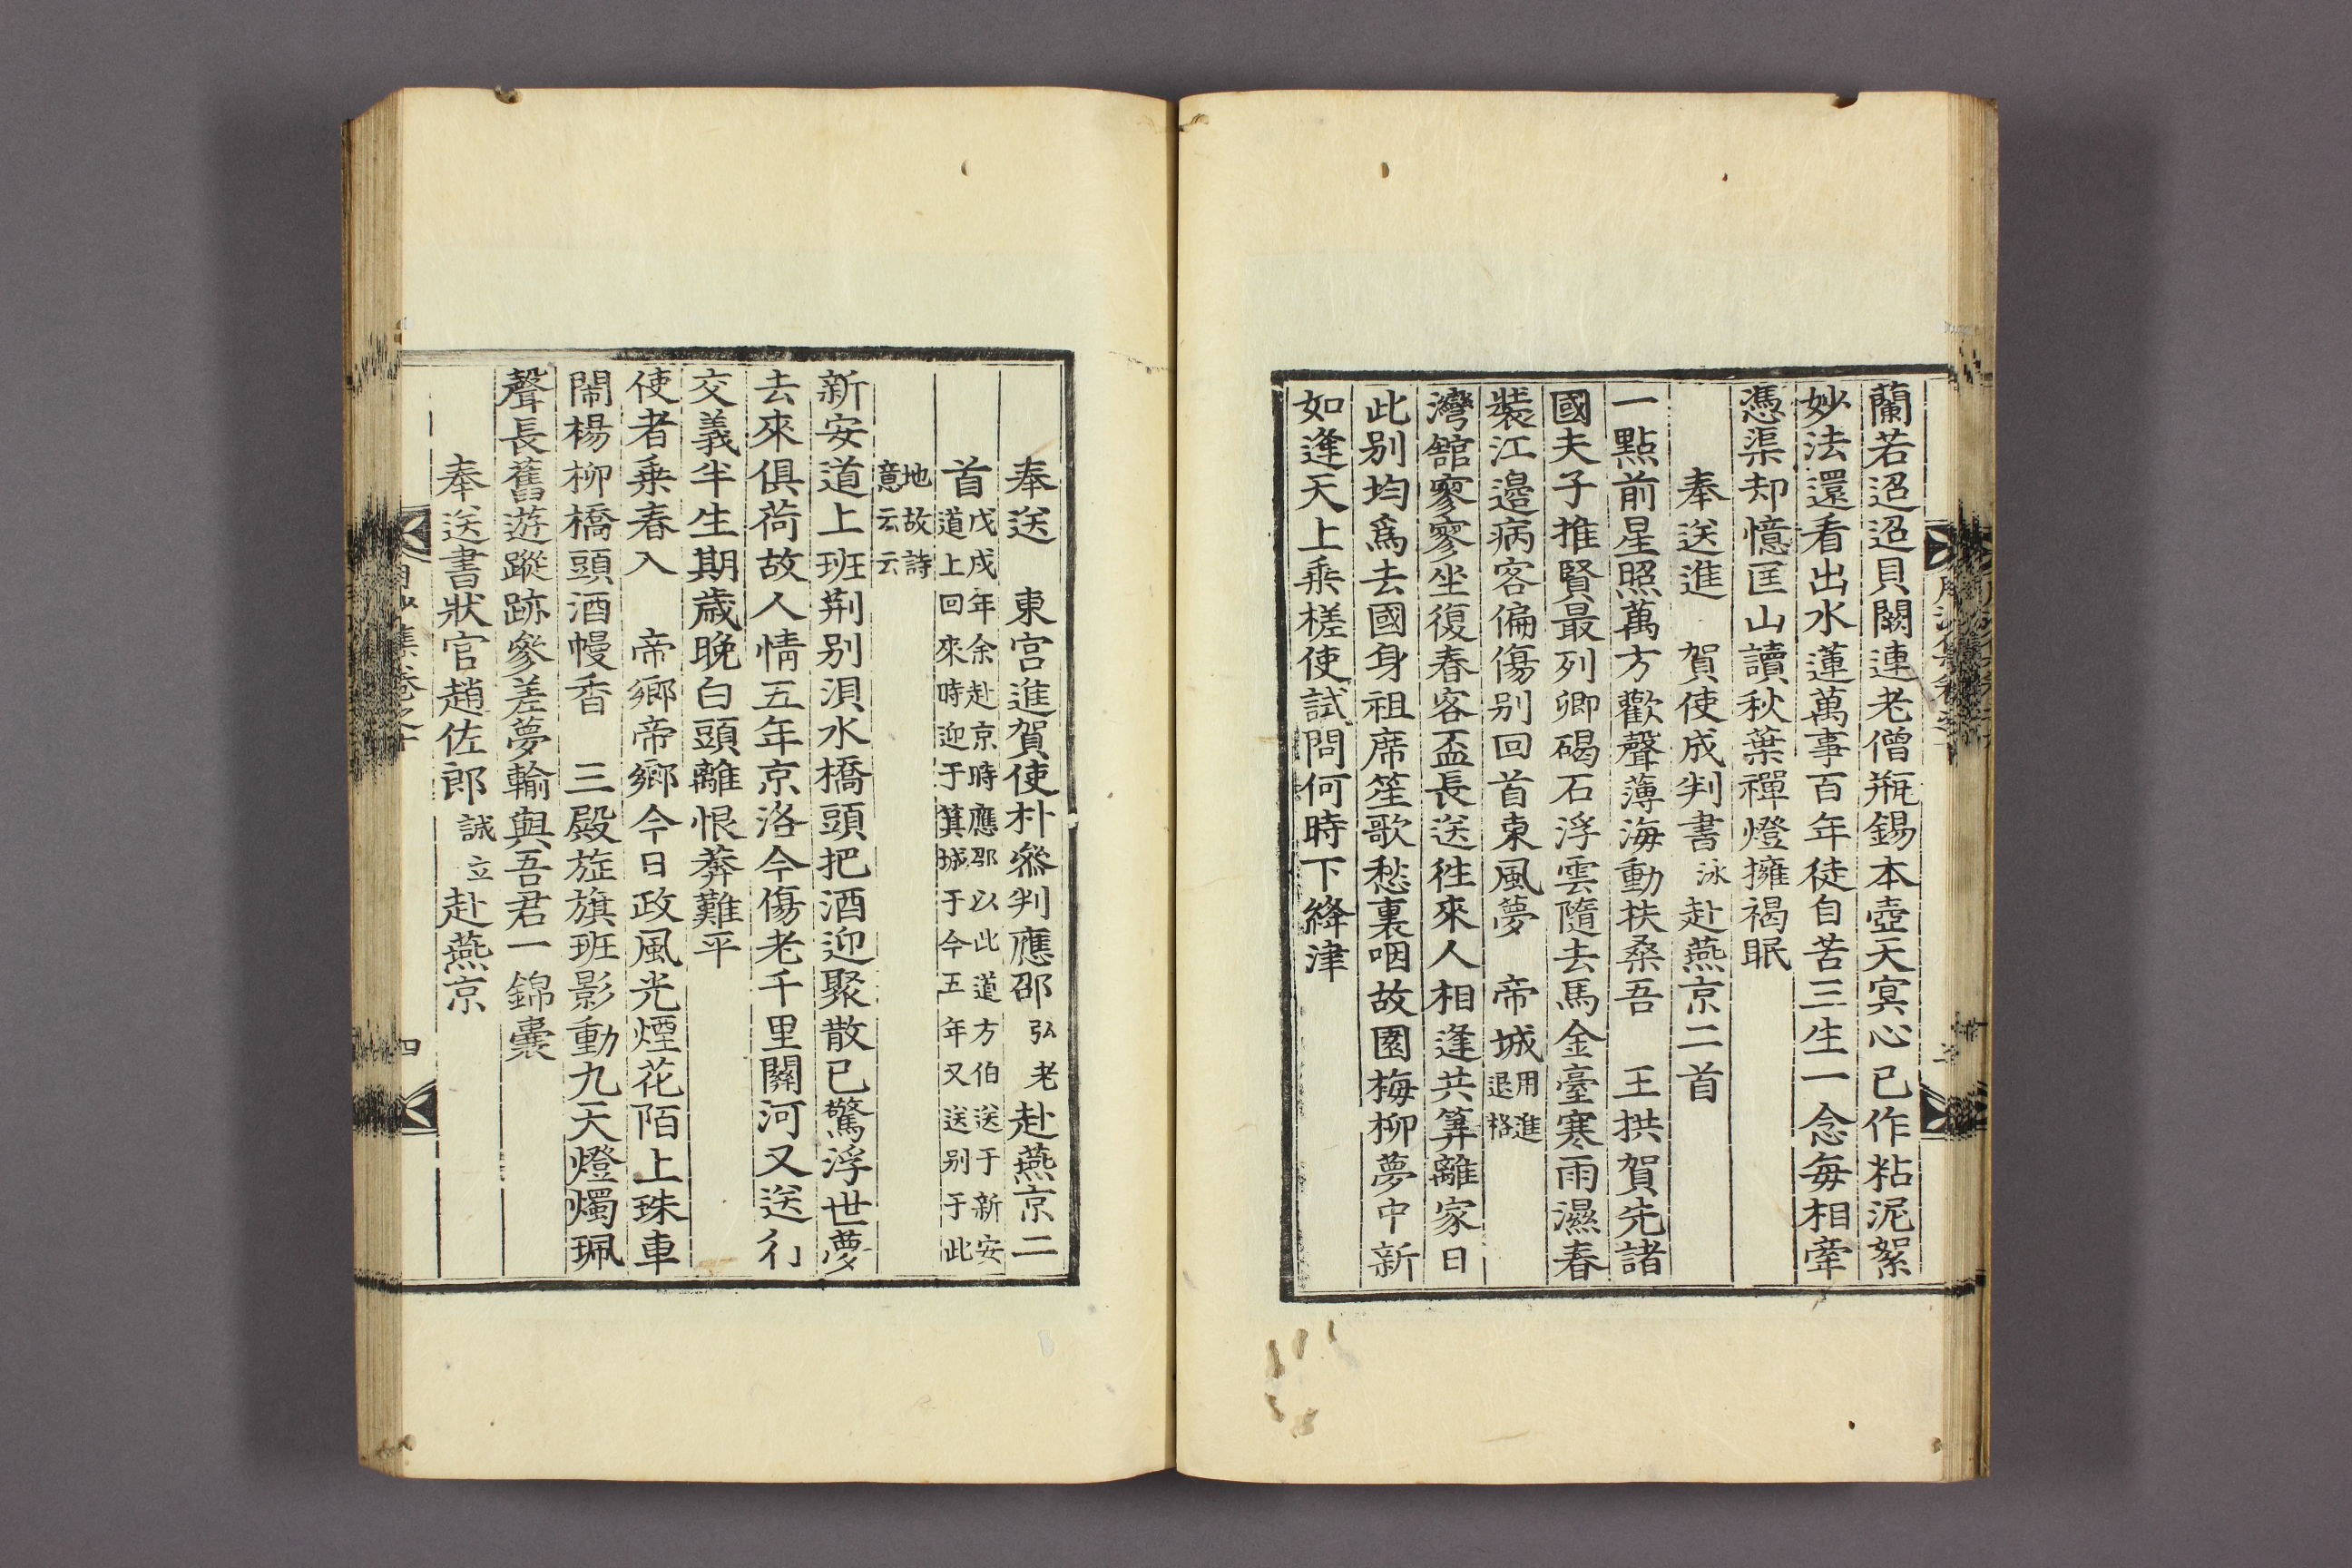 蘭若迢迢貝闕連老僧瓶錫本壺天冥心已作粘泥絮
妙法還看出水蓮萬事百年徒自苦三生一念每相牽
憑渠却憶匡山讀秋葉禪燈擁褐眠
奉送進 賀使成判書泳赴燕京二首
一點前星照萬方歡聲薄海動扶桑吾 王拱賀先諸
國夫子推賢最列卿碣石浮雲隨去馬金臺寒雨濕春
裝江邉病客偏傷别回首東風夢 帝城用進退格
灣舘寥寥坐復春客盃長送徃來人相逢共筭離家日
此别均爲去國身祖席笙歌愁裏咽故園梅柳夢中新
如逢天上乘槎使試問何時下絳津
奉送 東宮進賀使朴叅判應邵弘老赴燕京二
首戊戌年余赴京時應邵以此道方伯送于新安道上回來時迎于箕城于今五年又送别于此
地故詩意云云
新安道上班荆别浿水橋頭把酒迎聚散已驚浮世夢
去來俱荷故人情五年京洛今傷老千里關河又送行
交義半生期歳晩白頭離恨莾難平
使者乗春入 帝鄉帝鄉今日政風光煙花陌上珠車
閙楊柳橋頭酒幔香 三殿旌旗班影動九天燈燭珮
聲長舊遊蹤跡參差夢輸與吾君一錦囊
奉送書狀官趙佐郎誠立赴燕京
四